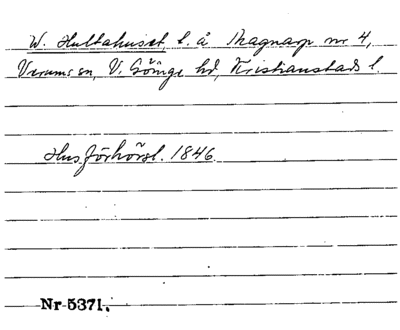 W. Hultahuset, l. å Magnarp nr 4,
Verums sn, V. Göinge hd, Kristianstads l.
Husförhörsl. 1846.
Nr 5371.